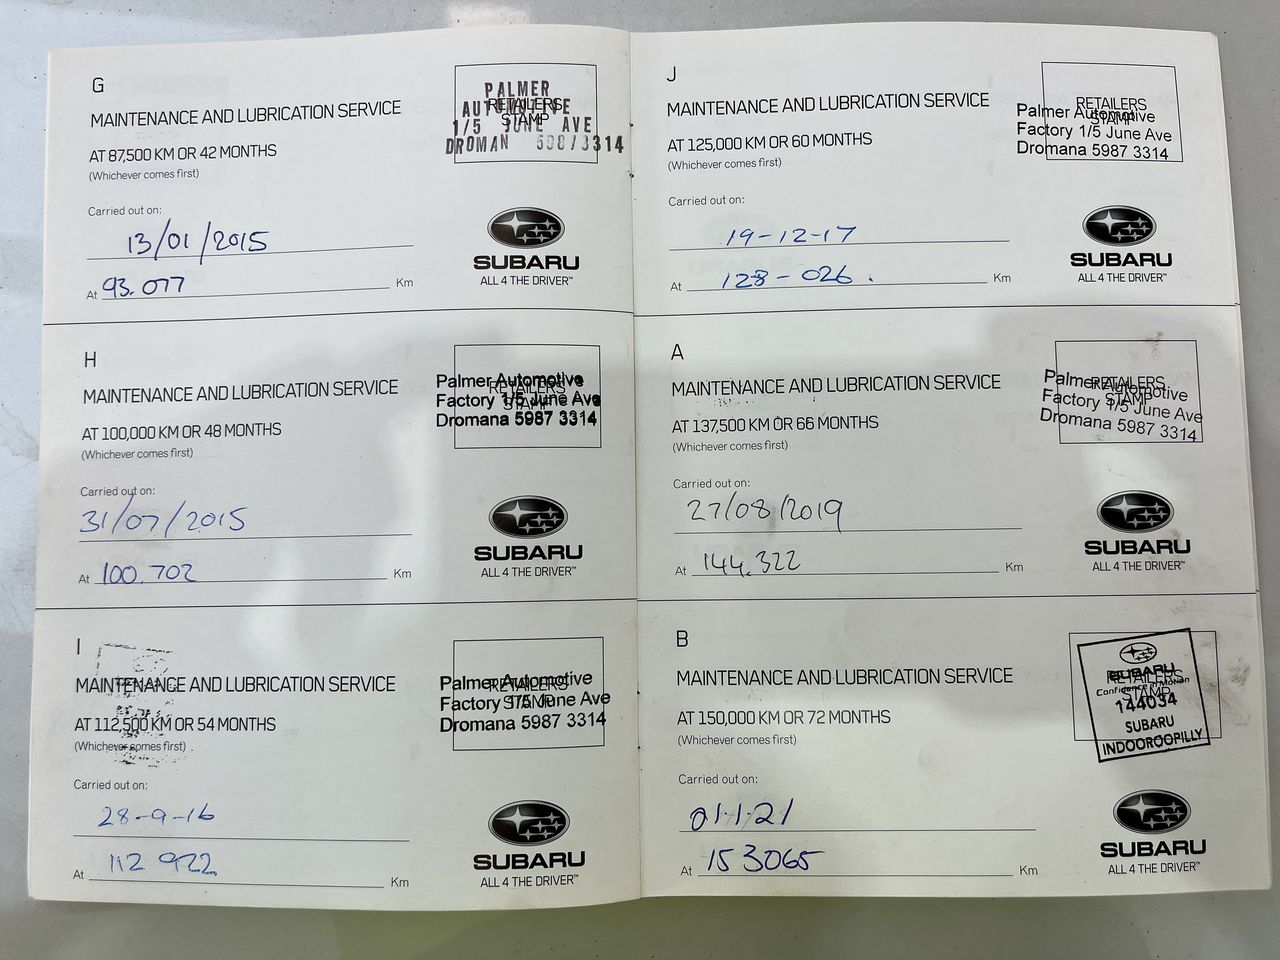 G
MAINTENANCE AND LUBRICATION SERVICE
AT 87,500 KM OR 42 MONTHS
(Whichever comes first)
RETAILERS
STAMP
PALMER
AUTOMOTIVE
1/5 JUNE AVE
DROMAN 5987 3314
Carried out on:
13/01/2015
At 93.077 Km
SUBARU
ALL 4 THE DRIVER™
H
MAINTENANCE AND LUBRICATION SERVICE
AT 100,000 KM OR 48 MONTHS
(Whichever comes first)
RETAILERS
STAMP
Palmer Automotive
Factory 1/5 June Ave
Dromana 5987 3314
Carried out on:
31/07/2015
At 100.702 Km
SUBARU
ALL 4 THE DRIVER™
I
MAINTENANCE AND LUBRICATION SERVICE
AT 112,500 KM OR 54 MONTHS
(Whichever comes first)
RETAILERS
STAMP
Palmer Automotive
Factory 1/5 June Ave
Dromana 5987 3314
Carried out on:
28-9-16
At 112 922 Km
SUBARU
ALL 4 THE DRIVER™
J
MAINTENANCE AND LUBRICATION SERVICE
AT 125,000 KM OR 60 MONTHS
(Whichever comes first)
RETAILERS
STAMP
Palmer Automotive
Factory 1/5 June Ave
Dromana 5987 3314
Carried out on:
19-12-17
At 128-026. Km
SUBARU
ALL 4 THE DRIVER™
A
MAINTENANCE AND LUBRICATION SERVICE
AT 137,500 KM OR 66 MONTHS
(Whichever comes first)
RETAILERS
STAMP
Palmer Automotive
Factory 1/5 June Ave
Dromana 5987 3314
Carried out on:
27/08/2019
At 144.322 Km
SUBARU
ALL 4 THE DRIVER™
B
MAINTENANCE AND LUBRICATION SERVICE
AT 150,000 KM OR 72 MONTHS
(Whichever comes first)
RETAILERS
STAMP
SUBARU
Confidence in Motion
144034
SUBARU
INDOOROOPILLY
Carried out on:
01.1.21
At 153065 Km
SUBARU
ALL 4 THE DRIVER™